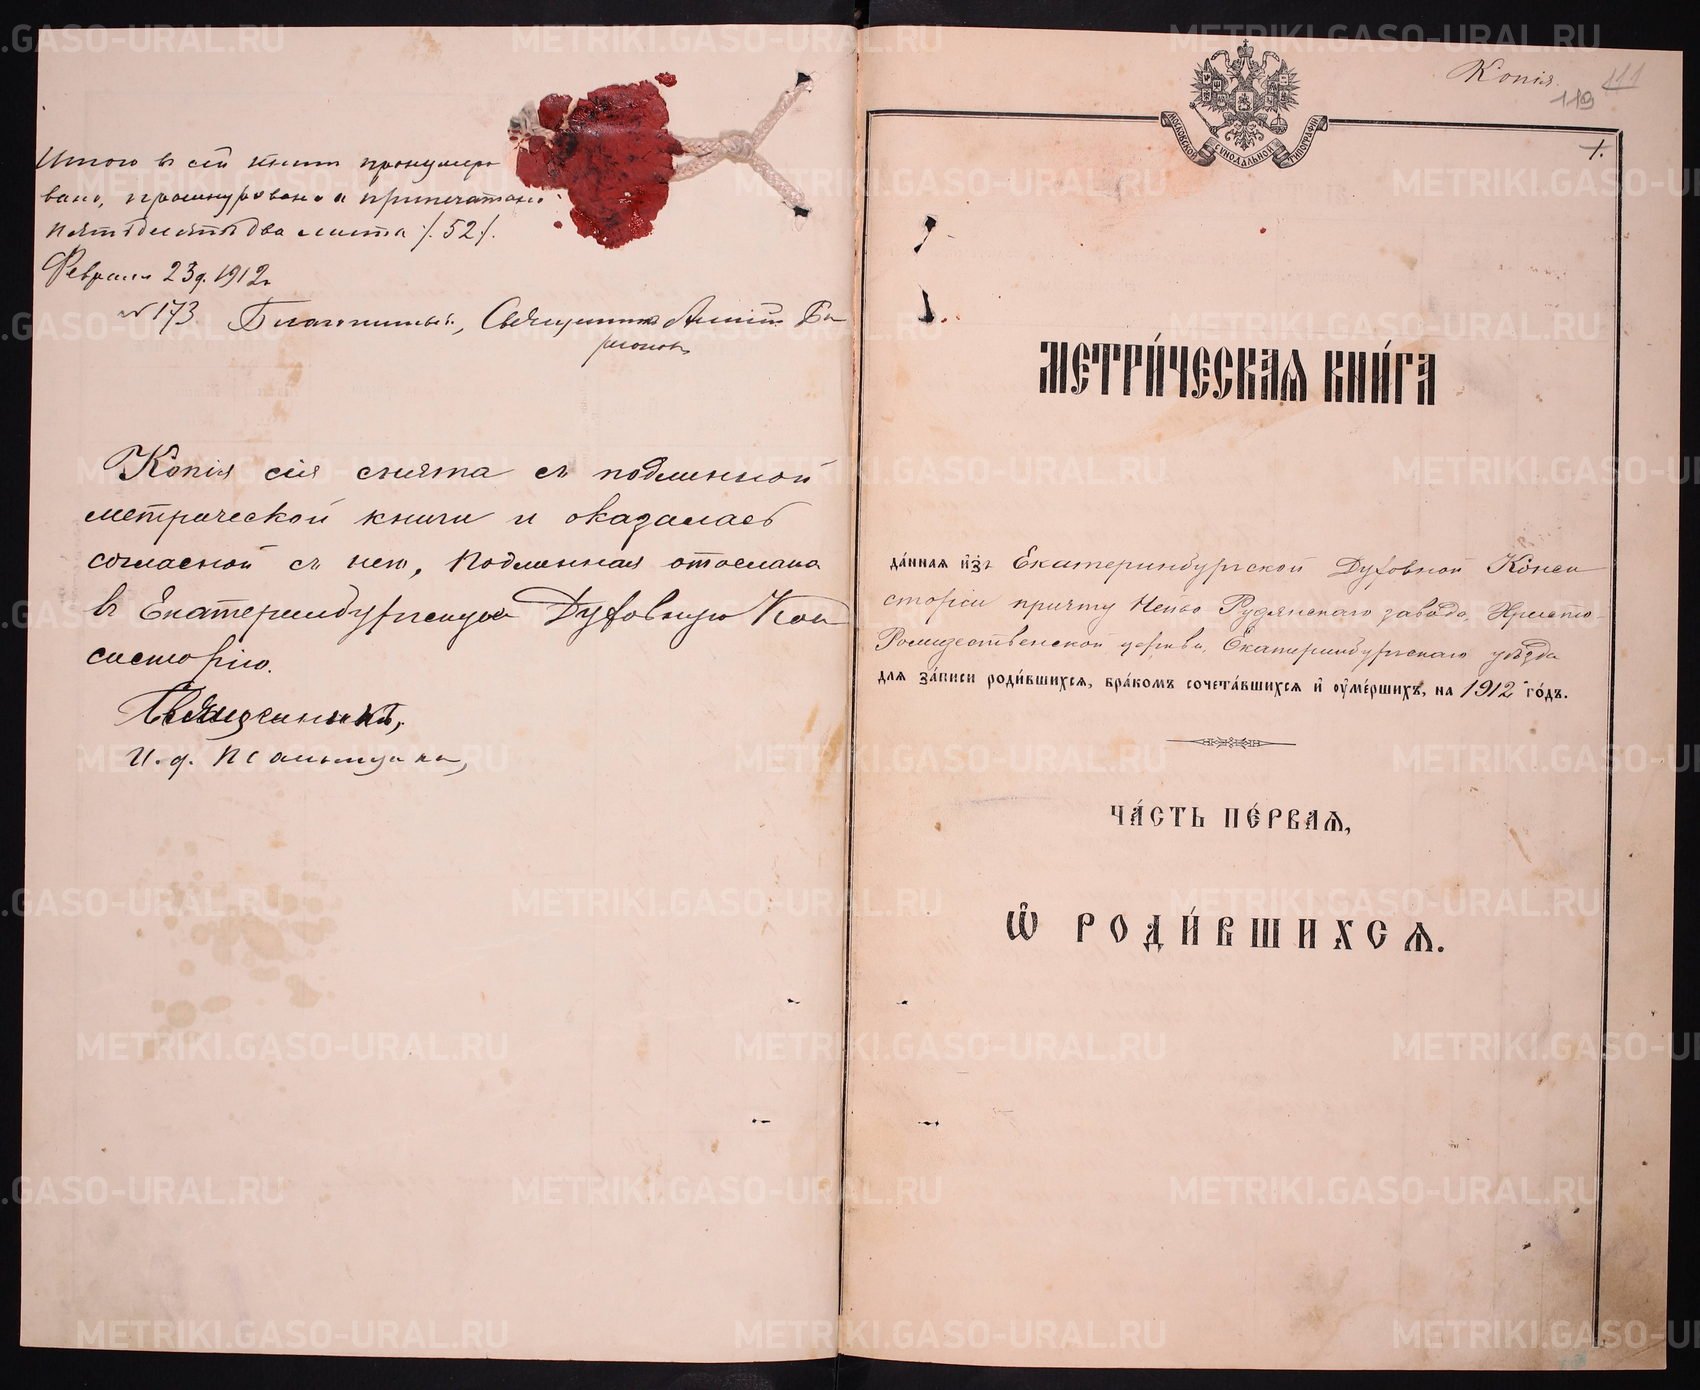 Итого въ сей книгѣ пронумеро
вано, прошнуровано и припечатано
пятьдесятъ два листа /.52/.
Февраля 23 д. 1912 г.
№ 173. Благочинный, Священникъ
Копія сія снята съ подлинной
метрической книги и оказалась
согласной съ нею, подлинная отослана
въ Екатеринбургскую Духовную Кон
систорію.
Священникъ,
И. д. Псаломщика,
Копія.
111
119
МОСКОВСКОЙ СѴНОДАЛЬНОЙ ТИПОГРАФІИ
1.
МЕТРИ́ЧЕСКАѦ КНИ́ГА
да́ннаѧ и҆зъ Екатеринбургской Духовной Конси
сторіи причту Нейво Рудянскаго завода, Христо-
Рождественской церкви, Екатеринбургскаго уѣзда
длѧ за́писи роди́вшихсѧ, бра́комъ сочета́вшихсѧ и҆ ᲂу҆ме́ршихъ, на 1912 го́дъ.
ЧА́СТЬ ПЕ́РВАѦ,
Ѽ РОДИ́ВШИХСѦ.
METRIKI.GASO-URAL.RU